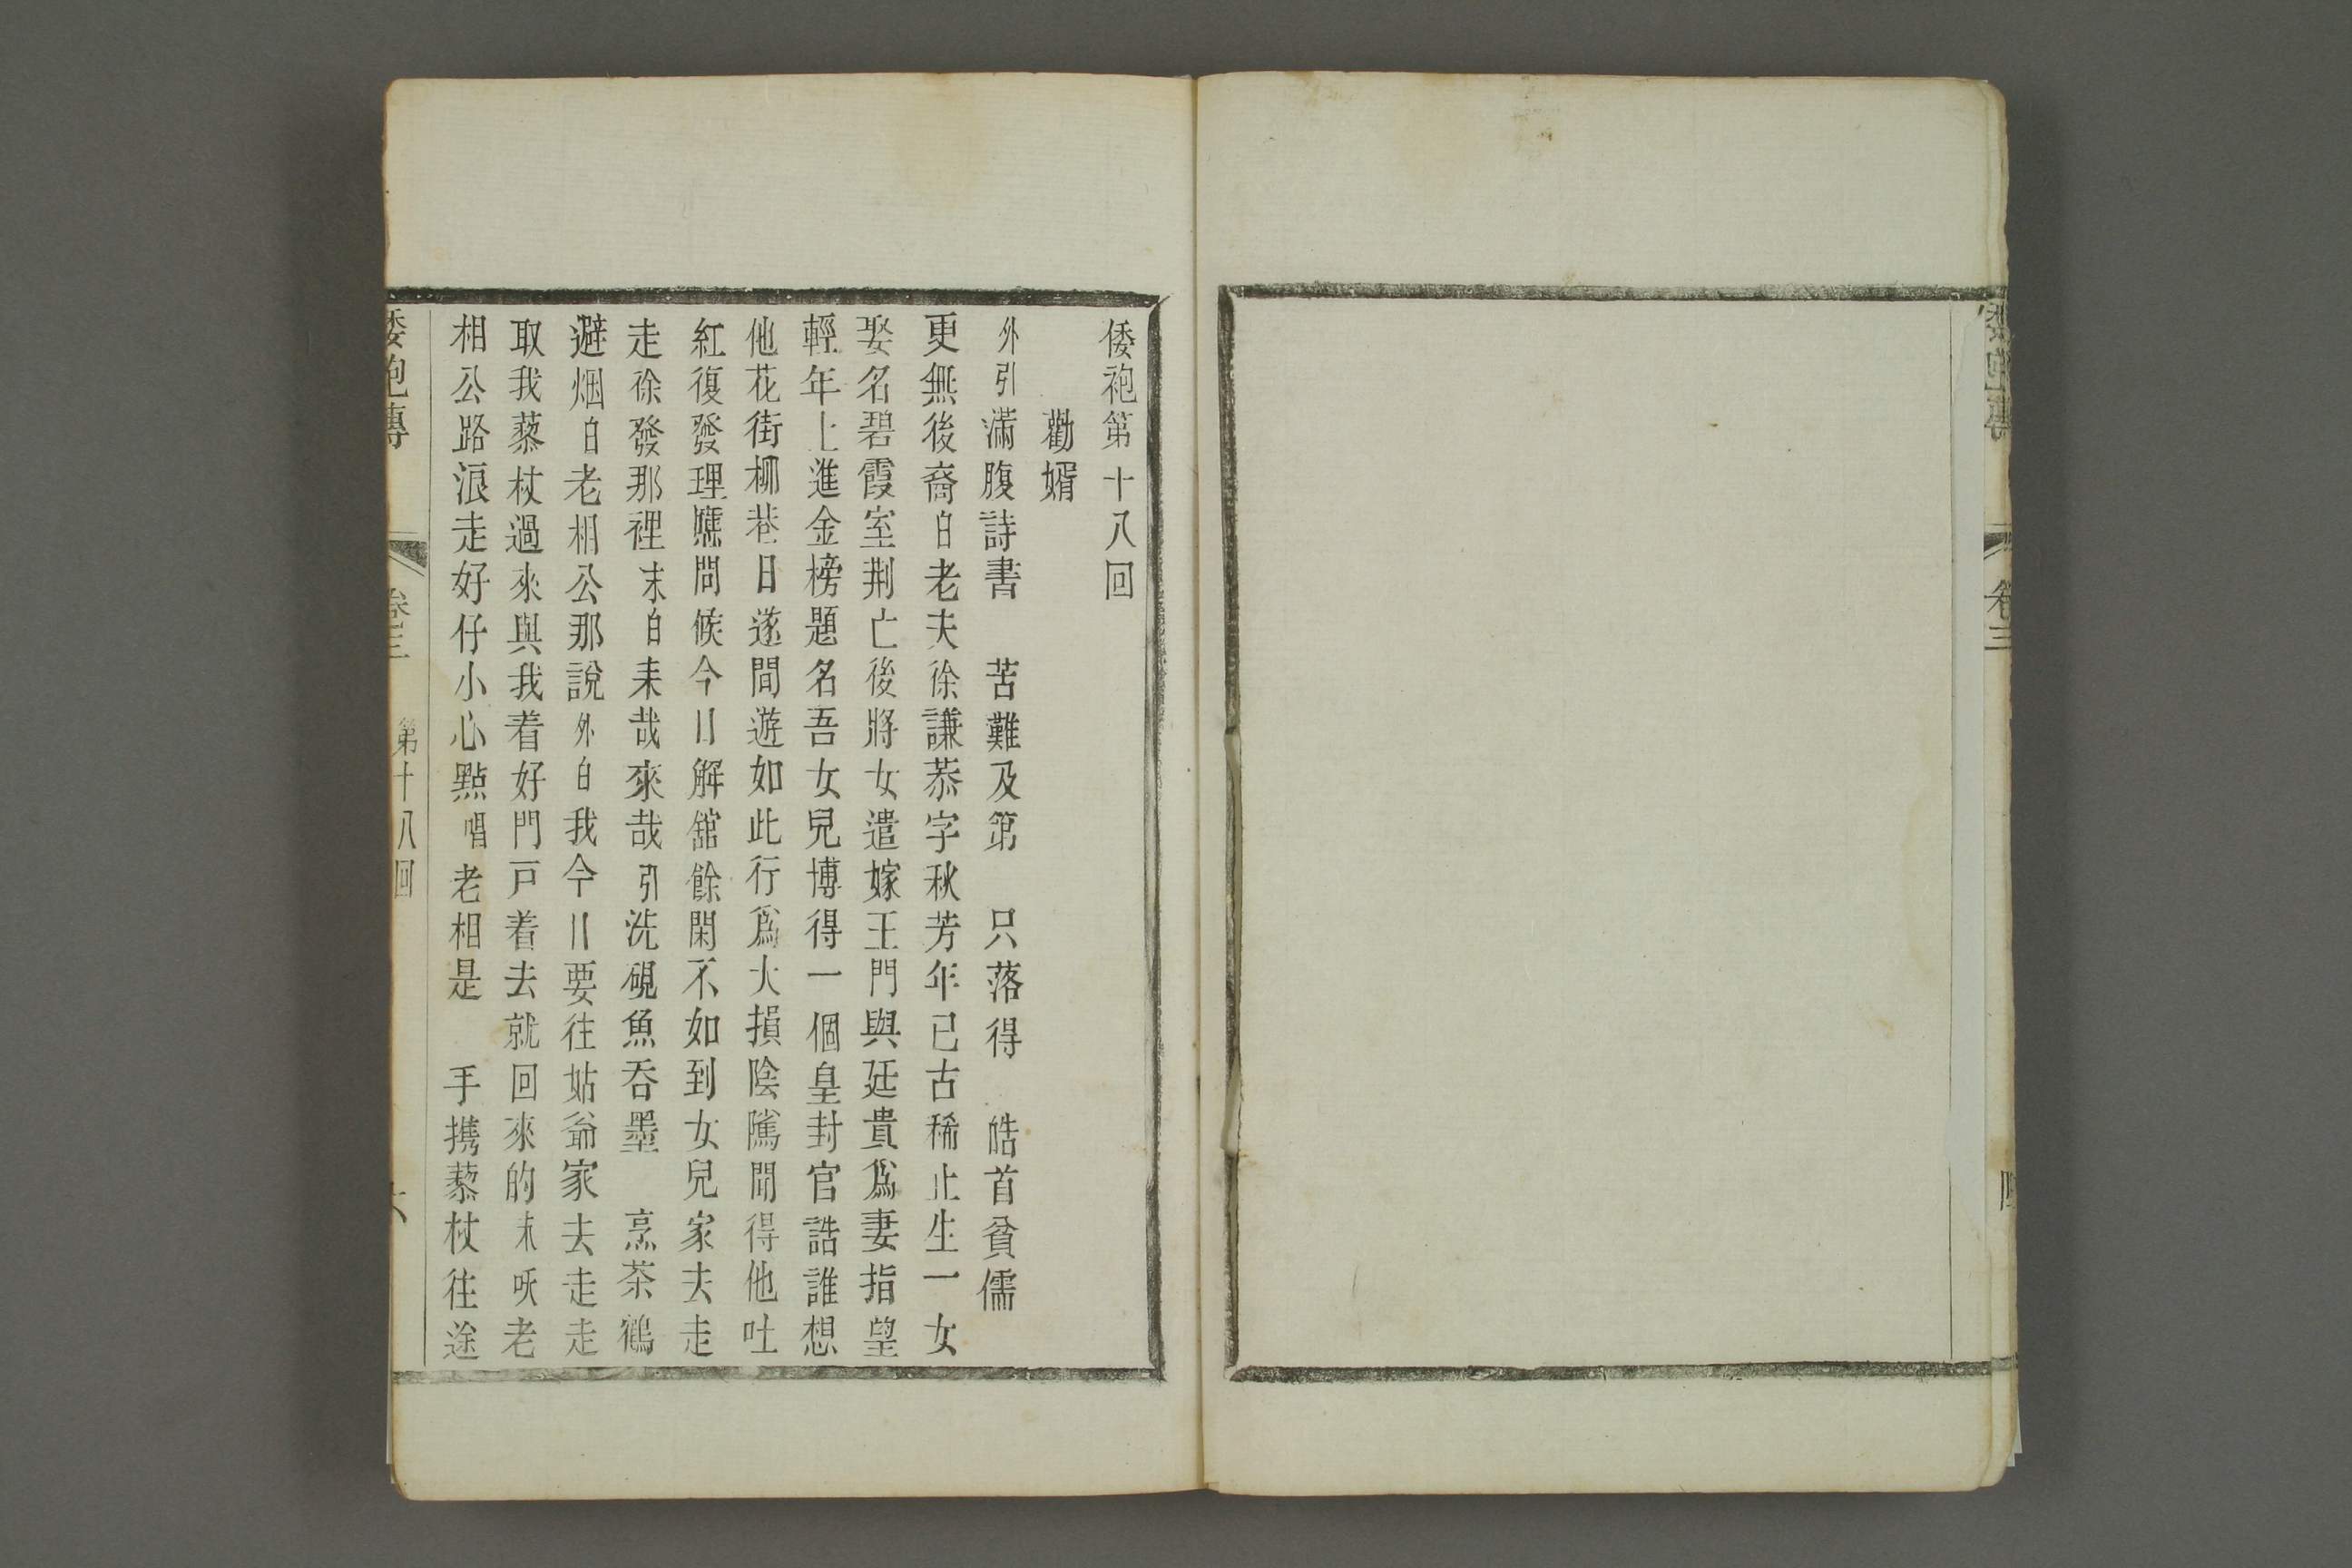 卷三
倭袍第十八回
勸婿
外引滿腹詩書　苦難及第　只落得　皓首貧儒
更無後裔白老夫徐謙恭字秋芳年已古稀止生一女
娶名碧霞室荆亡後將女遣嫁王門與廷貴爲妻指望
輕年上進金榜題名吾女兒博得一個皇封官誥誰想
他花街柳巷日遂間遊如此行爲大損陰隲聞得他吐
紅復發理應問候今日解舘餘閑不如到女兒家去走
走徐發那裡末白来哉來哉引洗硯魚吞墨　烹茶鶴
避烟白老相公那說外白我今日要往姑爺家去走走
取我藜杖過來與我着好門戸着去就回來的末㕵老
相公路滾走好仔小心點唱老相是　手携藜杖往途
倭袍傳　卷三　第十八回　六